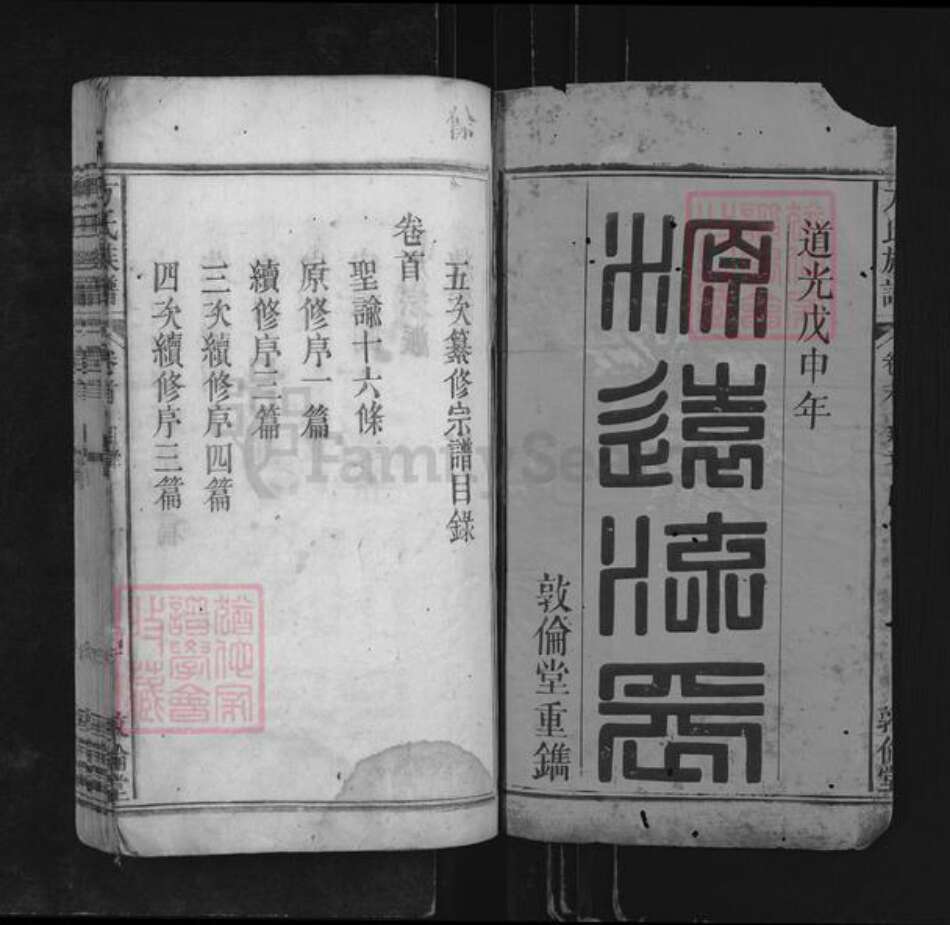 道光戊申年
源遠流長
敦倫堂重鐫
五次纂修宗譜目錄
卷首
聖諭十六條
原修序一篇
續修序三篇
三次續修序四篇
四次續修序三篇
氏族譜
卷首
敦倫堂
FamilySe